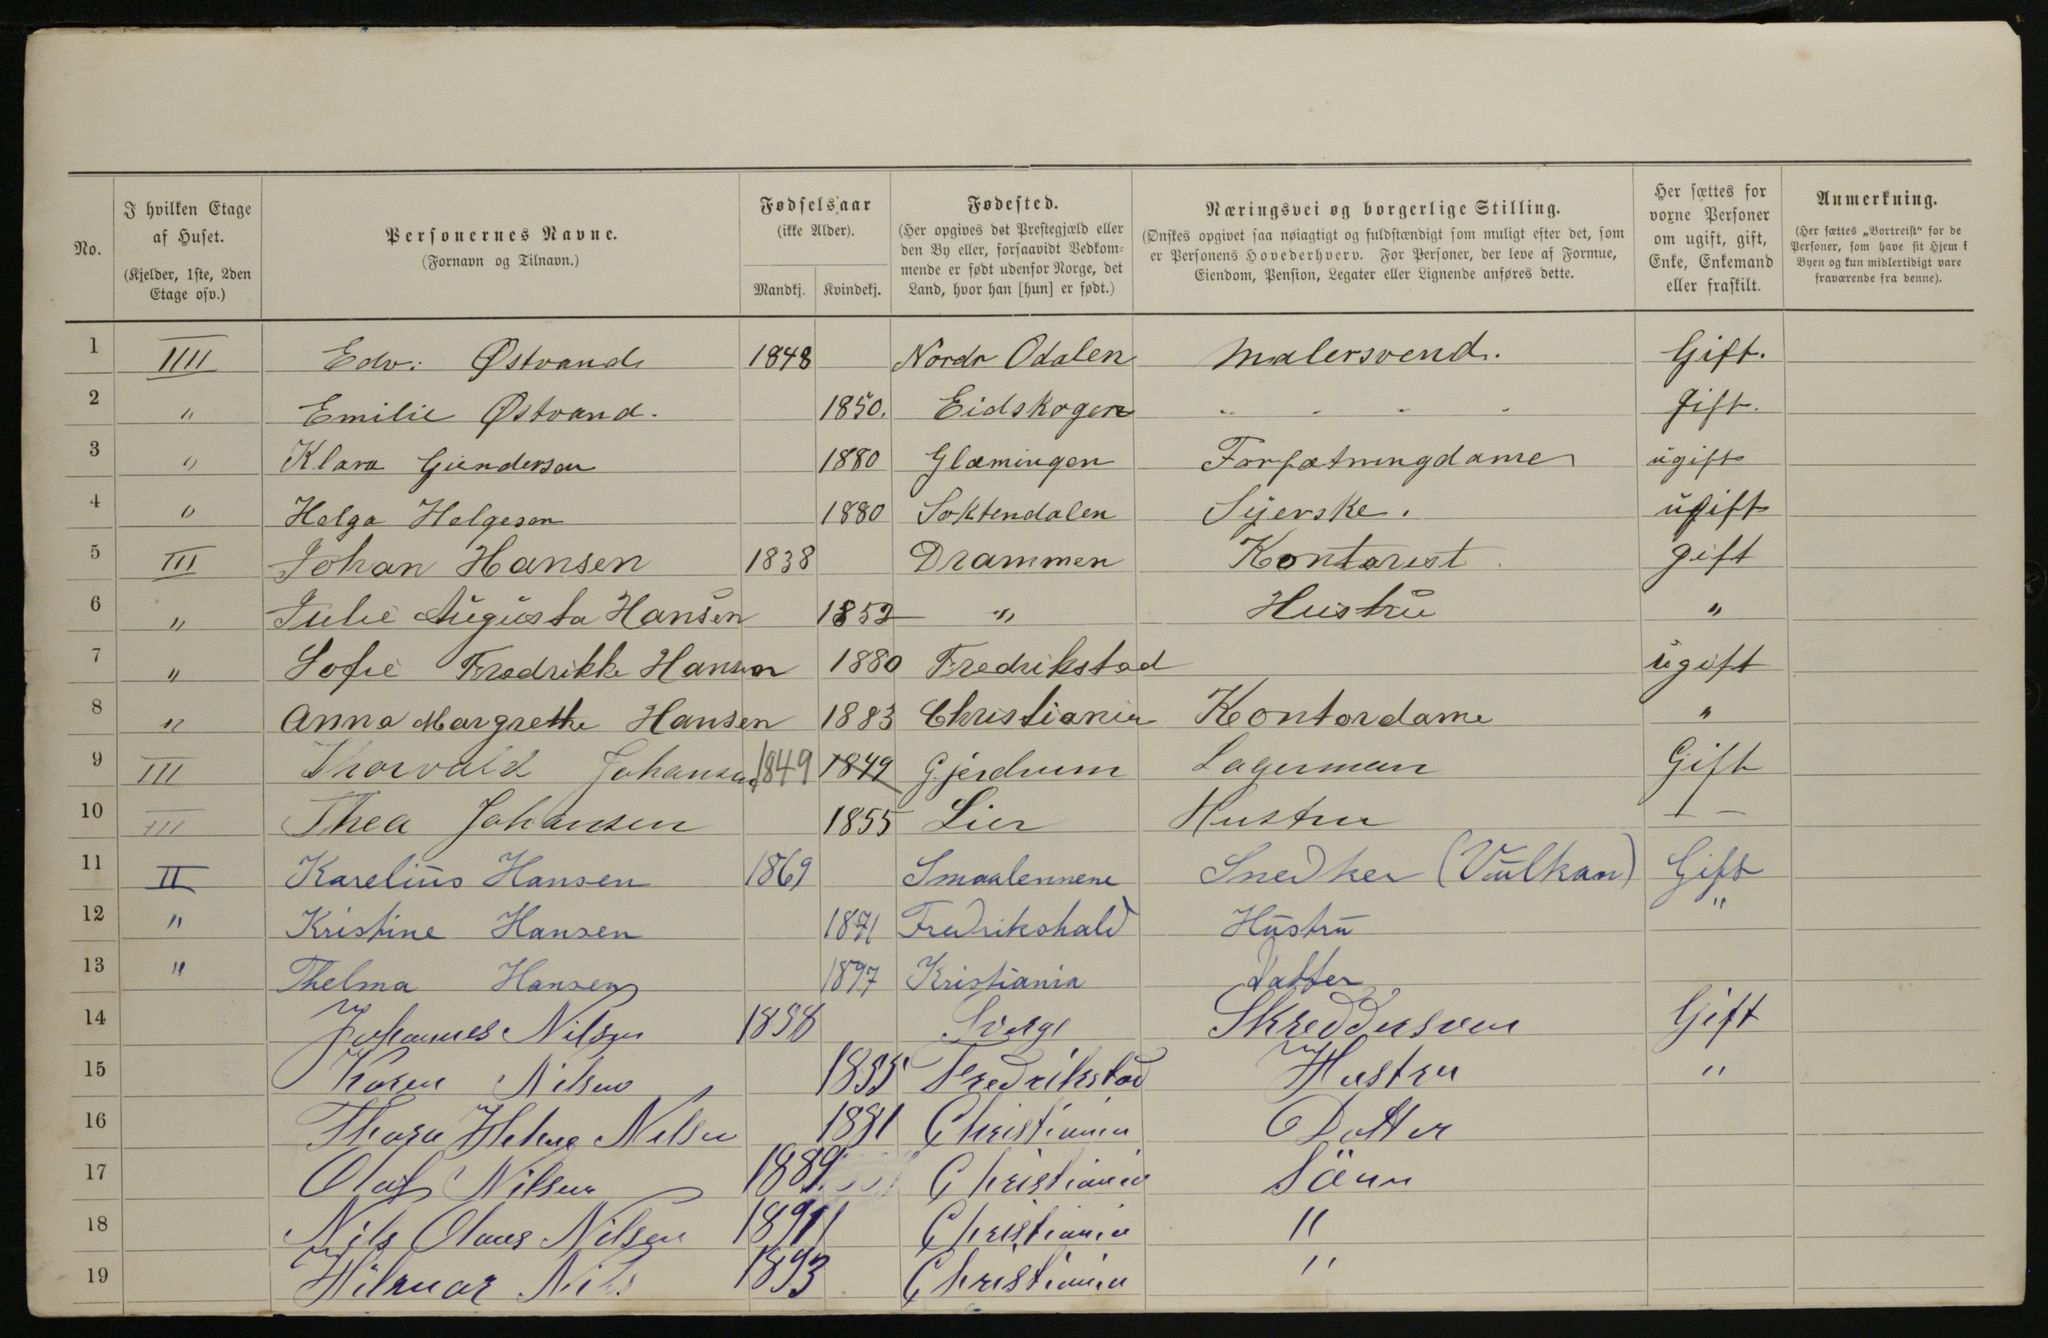 No.
I hvilken Etage af Huset.
(Kjelder, 1ste, 2den Etage osv.)
Personernes Navne.
(Fornavn og Tilnavn.)
Fødselsaar
(ikke Alder).
Mandkj. Kvindekj.
Fødested.
(Her opgives det Prestegjæld eller den By eller, forsaavidt Vedkommende er født udenfor Norge, det Land, hvor han [hun] er født.)
Næringsvei og borgerlige Stilling.
(Ønskes opgivet saa nøiagtigt og fuldstændigt som muligt efter det, som er Personens Hovederhverv. For Personer, der leve af Formue, Eiendom, Pension, Legater eller Lignende anføres dette.
Her sættes for voxne Personer om ugift, gift, Enke, Enkemand eller fraskilt.
Anmerkning.
(Her sættes „Bortreist“ for de Personer, som have sit Hjem i Byen og kun midlertidigt vare fraværende fra denne).
1 IIII Edv: Østvand 1848 Nordr Odalen Malersvend. Gift.
2 " Emilie Østvand. 1850. Eidskogen " " " " gift.
3 " Klara Gundersen 1880 Glæmingen Forsætningdame ugift
4 " Helga Helgesen 1880 Soktendalen Syerske. ugift
5 III Johan Hansen 1838 Drammen Kontorist gift
6 " Julie Augusta Hansen 1852 " Hustru "
7 " Sofie Fredrikke Hansen 1880 Fredrikstad ugift
8 " Anna Margrethe Hansen 1883 Christiania Kontordame "
9 III Thorvald Johansen 1849 1849 Gjerdrum Lagerman Gift
10 III Thea Johansen 1855 Lier Hustru — " —
11 II Karelius Hansen 1869 Smaalennene Snedker (Vulkan) Gift
12 " Kristine Hansen 1871 Fredrikshald Hustru "
13 " Thelma Hansen 1897 Kristiania Datter
14 Johannes Nilsen 1858 Sverge Skreddersven Gift
15 Karen Nilsen 1855 Fredrikstad Hustru "
16 Thora Helene Nilsen 1881 Christiania Dotter
17 Olaf Nilsen 1889 Christiania Sönn
18 Nils Olaus Nilsen 1891 Christiania "
19 Hilmar Nils 1893 Christiania "